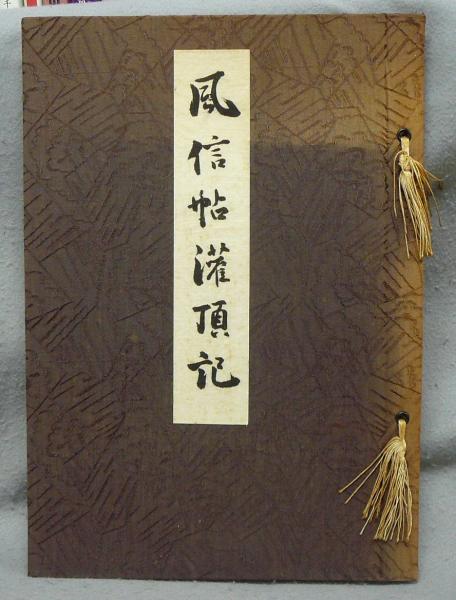 風信帖灌頂記